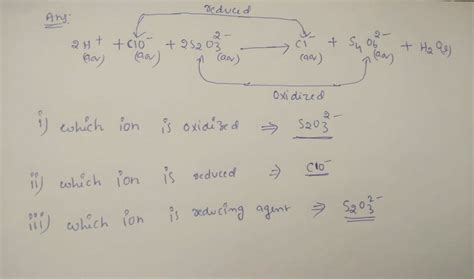 Ans:
reduced
2H⁺ + ClO⁻ + 2S₂O₃²⁻ ⟶ Cl⁻ + S₄O₆²⁻ + H₂O(l)
(aq) (aq) (aq) (aq) (aq)
Oxidized
i) which ion is oxidized ⇒ S₂O₃²⁻
ii) which ion is reduced ⇒ ClO⁻
iii) which ion is reducing agent ⇒ S₂O₃²⁻